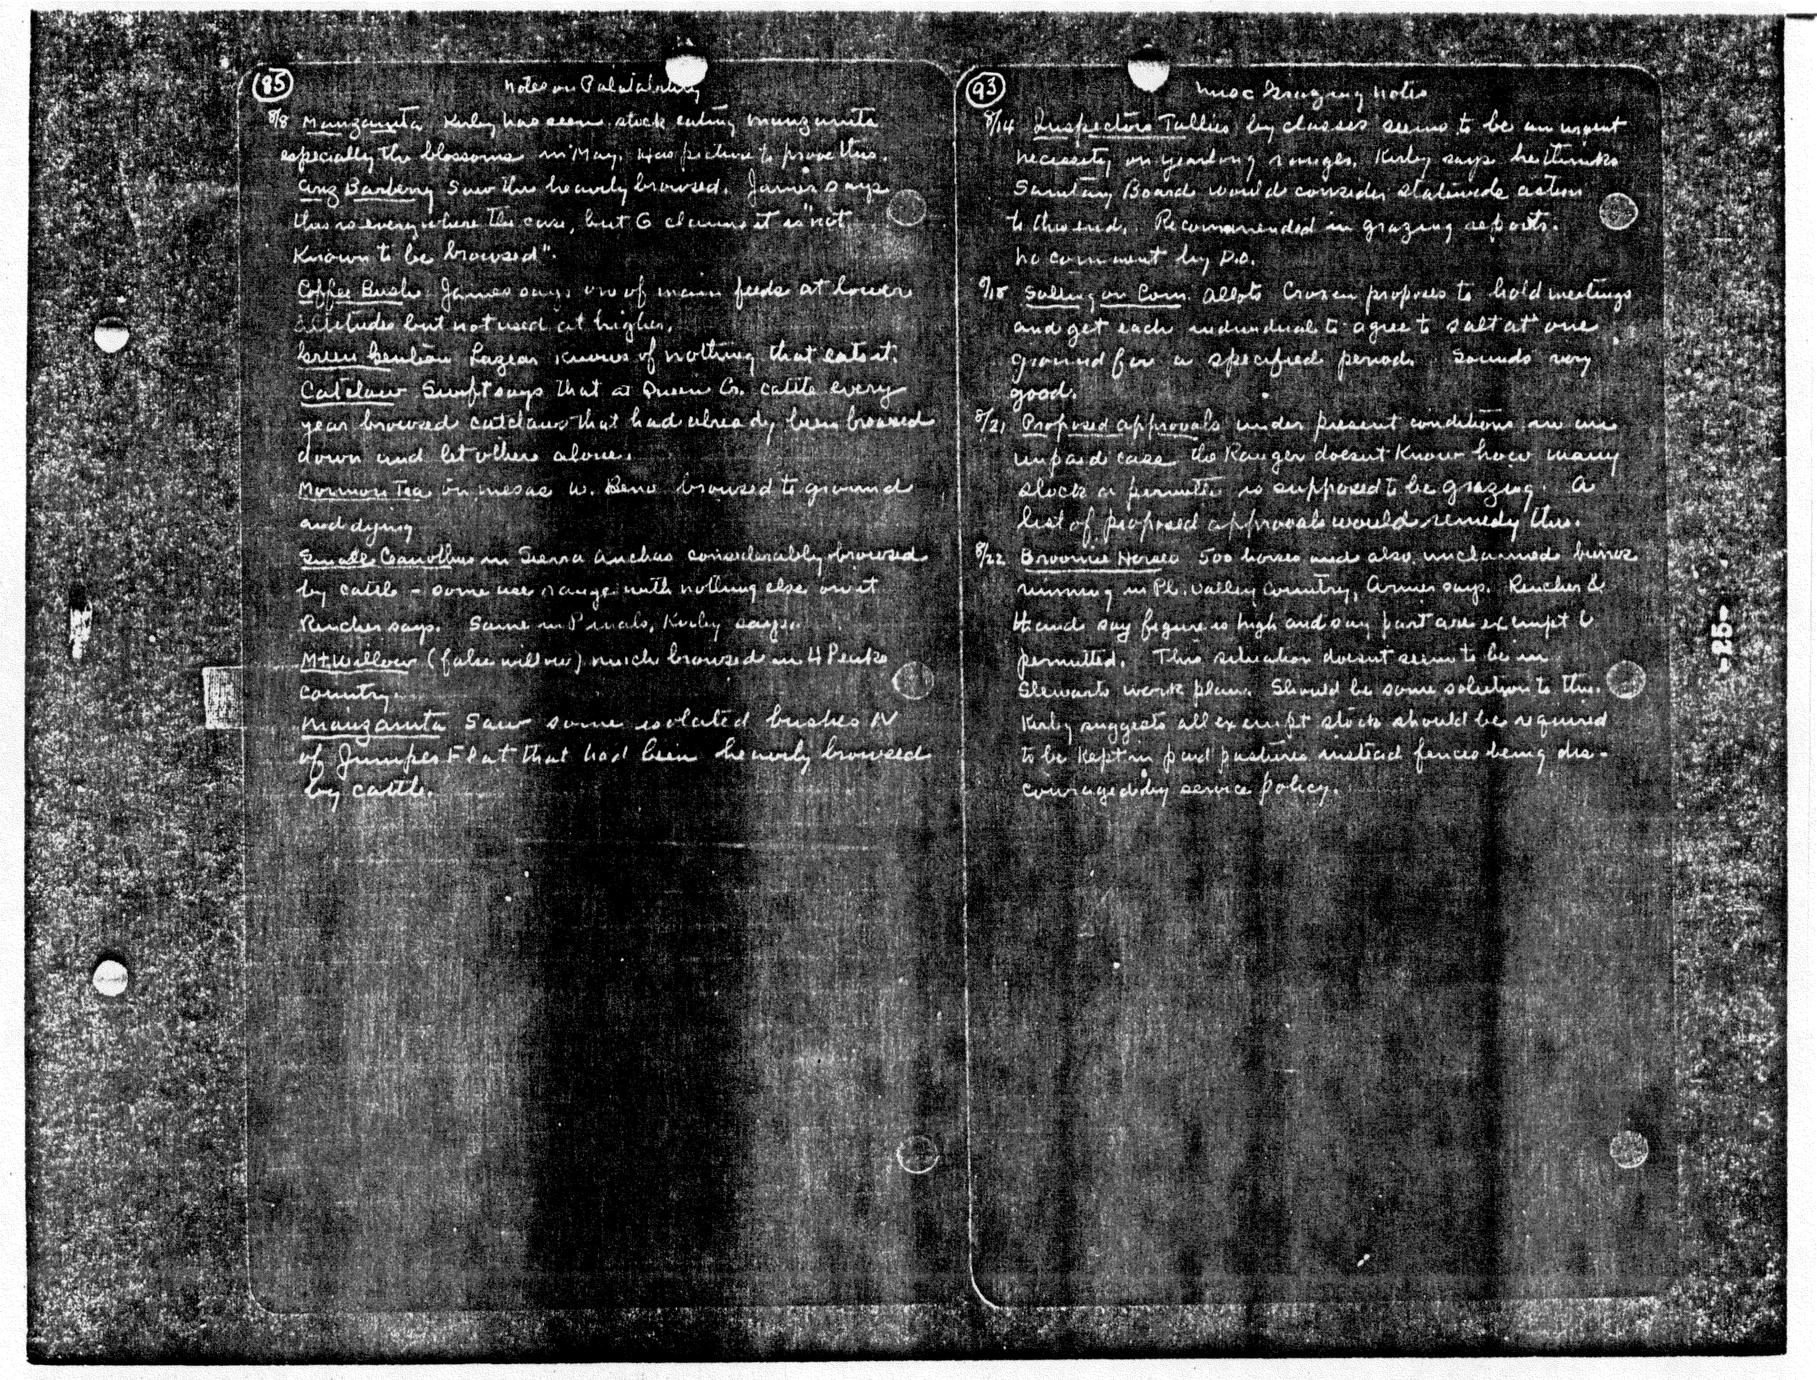 85
Notes on Palatability
8/8 Manzanita Kirby has seen stock eating manzanita
especially the blossoms in May. Has picture to prove this.
Ariz Barberry Saw this heavily browsed. James says
this is everywhere the case, but G claims it is "not
known to be browsed".
Coffee Bush James says one of main feeds at lower
altitudes but not used at higher.
Green Gentian Lazear knows of nothing that eats it.
Catclaw Swift says that at Queen Cr. cattle every
year browsed catclaw that had already been browsed
down and let others alone.
Mormon Tea on mesas w. Reno browsed to ground
and dying
Small Ceanothus in Sierra Anchas considerably browsed
by cattle - some use range with nothing else on it
Rencher says. Same in Pinals, Kirby says.
Mt. Willow (false willow) much browsed in 4 Peaks
Country.
Manzanita Saw some isolated bushes N
of Juniper Flat that had been heavily browsed
by cattle.
93
Misc Grazing Notes
8/14 Inspectors Tallies by classes seems to be an urgent
necessity on yearlong ranges. Kirby says he thinks
Sanitary Board would consider statewide action
to this end. Recommended in grazing reports.
No comment by D.O.
8/18 Salting on Com. allots Croxen proposes to hold meetings
and get each individual to agree to salt at one
ground for a specified period. Sounds very
good.
8/21 Proposed approvals under present conditions in an
unpaid case the Ranger doesnt know how many
stock a permittee is supposed to be grazing. A
list of proposed approvals would remedy this.
8/22 Broomie Horses 500 horses and also unclaimed burros
running in Pl. Valley Country, Armer says. Rencher &
Hand say figure is high and say part are exempt &
permitted. This situation doesnt seem to be in
Stewarts work plan. Should be some solution to this.
Kirby suggests all exempt stock should be required
to be kept in paid pastures instead fences being dis-
couraged by service policy.
-25-